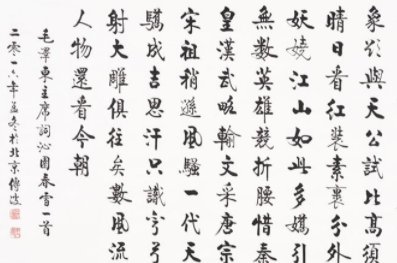 象欲與天公試比高須
晴日看紅裝素裹分外
妖嬈江山如此多嬌引
無數英雄競折腰惜秦
皇漢武略輸文采唐宗
宋祖稍遜風騷一代天
驕成吉思汗只識彎弓
射大雕俱往矣數風流
人物還看今朝
毛澤東主席詞沁園春雪一首
二零一六年孟冬於北京